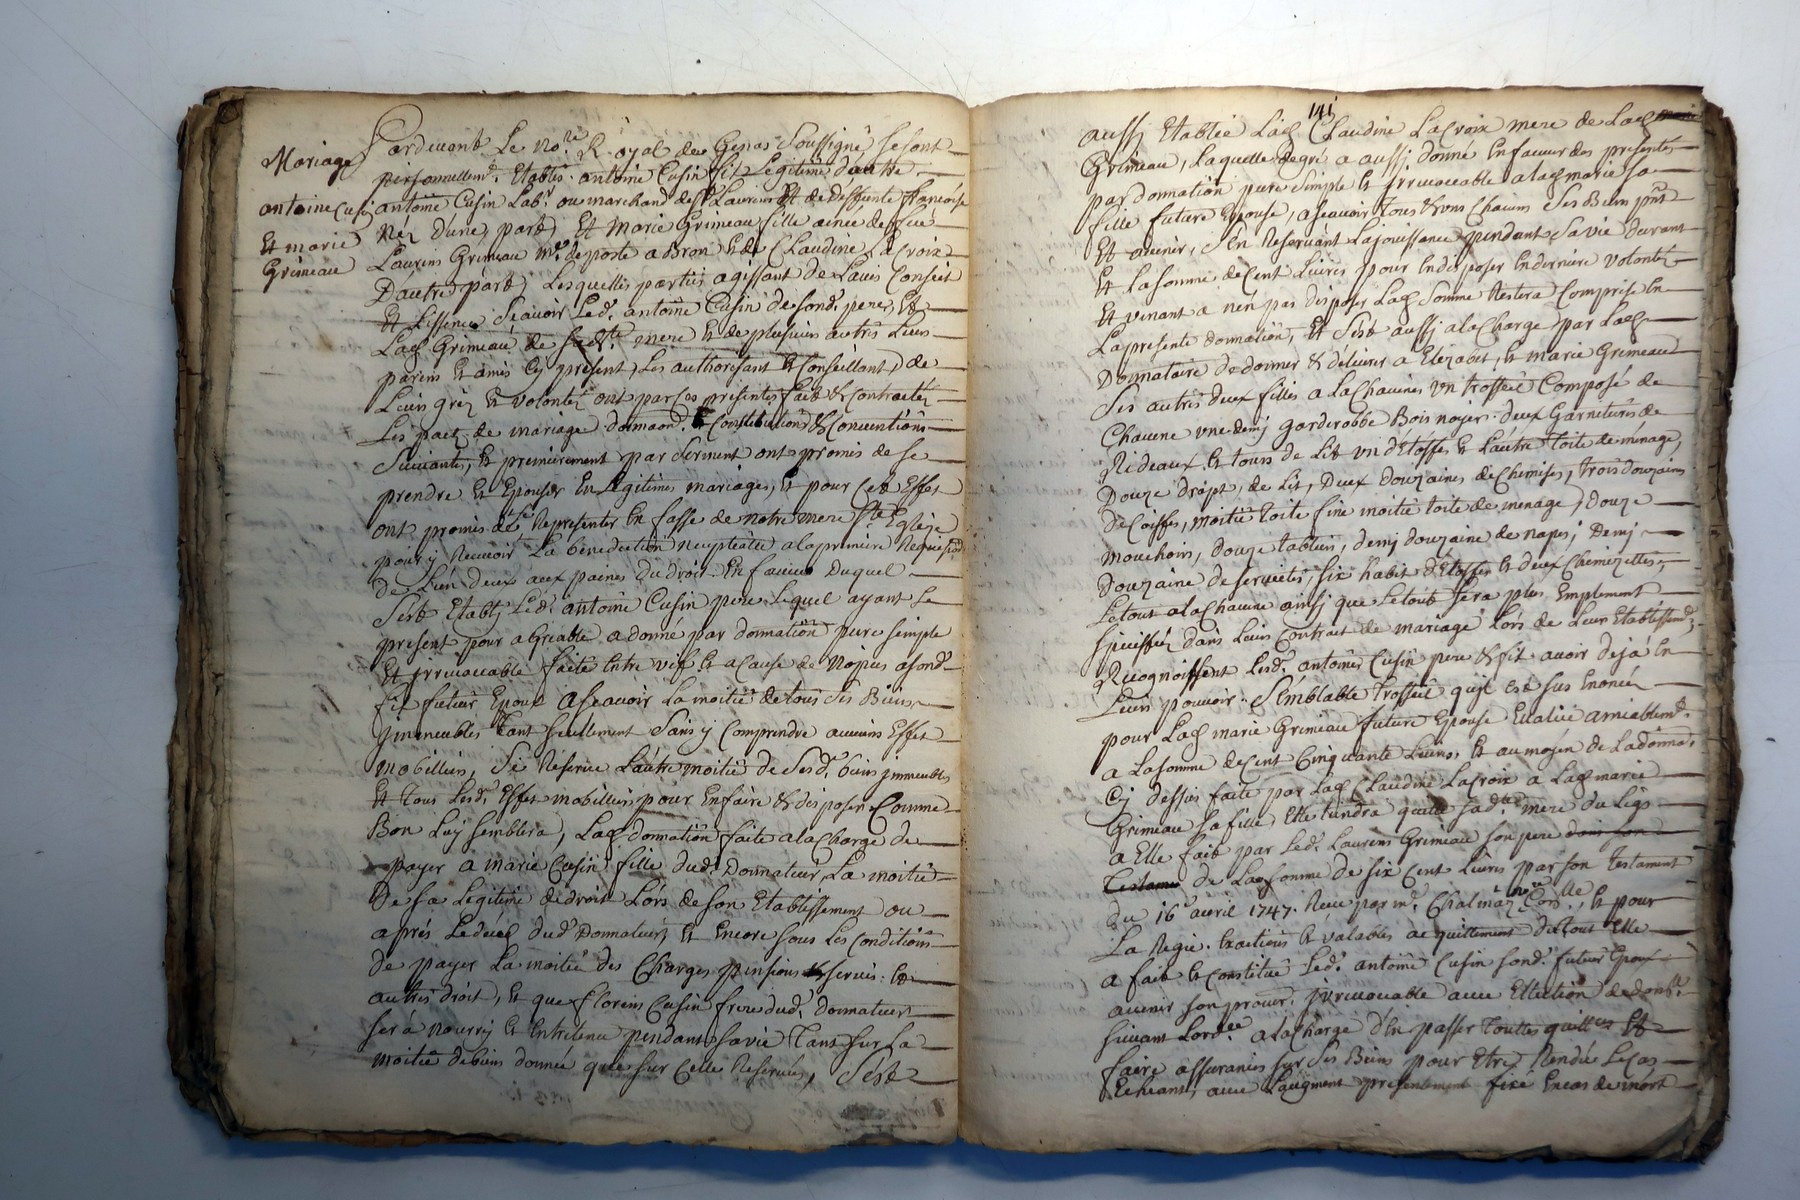 Mariage
antoine Cusin
Et marie
Grimeau
Pardevant Le no.re Royal de Genas Soussigné se sont
personnellem.t Etablis antoine Cusin fils Legitime d'autre
antoine Cusin Lab.r ou marchand de S.t Laurens Et de deffunte francoise
Nez d'une part, Et Marie Grimeau fille ainée de feu
Laurens Grimeau m.e de poste a Bron Et de Claudine Lacroix
D'autre part, Lesquelles parties agissant de L'avis Conseil
Et Lissence Scavoir Led. antoine Cusin de sond. pere, Et
Lad. Grimeau de sad.te mere Et de plusieurs autres Leurs
parens Et amis Cy present, Les authorisant Et Conseillant, de
Leurs grèz Et volontéz ont par Ces presentes fait & Contractéz
Les pact de mariage donnaon. Constitutions & Conventions
Suivantes, Et premierement par Serment ont promis de se
prendre Et Epouser En Legitimes mariages, Et pour Cet Effet
ont promis de se Representer En fasse de notre mere S.te Eglize
pour y Recevoir La bénédiction neuptialle a la premiere Requisition
de L'un deux aux paines du droit En faveur Duquel
S'est Etably Led. antoine Cusin pere Lequel ayant Le
present pour agréable a donné par donnation pure simple
Et irrevocable faite Entre vifs Et a Cause de Nopces a sond.
fils futur Epoux a Scavoir La moitié de tous Ses Biens
jmmeubles Tant seullement Sans y Comprendre aucuns Effet
mobilliers, Se Reserve L'autre moitié de Sesd. biens jmmeubles
Et Tous Lesd. Effet mobilliers pour En faire & disposer Comme
Bon Luy semblera, Lad. donnation faite a la Charge de
payer a marie Cusin fille dud. Donnateur La moitié
De sa Legitime de droit Lors de son Etablissement ou
aprés Le décéd dud. Donnateur, Et Encore sous Les Conditions
De payer La moitié des Charges pensions & servis Et
autres droit, Et que florens Cusin frere dud. Donnateur
sera nourry Et Entretenu pendant sa vie Tant sur La
moitié de biens donnée que sur Celle Reservée, S'est
141
aussy Etablie Lad. Claudine Lacroix mere de Lad.
Grimeau, Laquelle de gré a aussy donné En faveur des presentes
par donnation pure simple Et irrevocable a lad. marie sa
fille future Epouse, a Scavoir Tous & uns Chacuns Ses Biens p.nt
Et avenir, S'en Reservant La jouissance pendant Sa vie durant
Et La somme de Cent Livres pour En disposer En derniere volonté
Et venant a n'en pas disposer Lad. Somme Restera Comprise En
La presente donnation, Et S'est aussy a la Charge par Lad.
Donnataire de donner & delivrer a Elizabet, Et marie Grimeau
Ses autres deux filles a La Chacunes un trosseic Composé de
Chacune une demy garderobbe Bois noyer deux Garnitures de
Rideaux Et tours de Lit un d'Etoffes Et L'autre toile de ménage,
Douze drapt, de Lit, Deux douzaines de Chemises, trois douzaines
de Coiffes, moitié toile fine moitié toile de menage, Douze
mouchoirs, douze tabliers, demy douzaine de napes, Demy
Douzaine de serviettes, six habit d'Etoffes Et deux Chemizettes,
Le tout a la Chacune ainsy que Le tout sera plus Emplement
speciffiés dans Leurs Contrat de mariage Lors de Leur Etablissem.t,
Recognoissent Lesd. antoines Cusin pere & fils avoir déjà En
Leurs pouvoir Semblable trosseic qu'il est sus Enoncéz
pour Lad. marie Grimeau future Epouse Evalué amiablem.t
a La somme de Cent Cinquante Livres, Et au moyen de La donna.on
Cy dessus faite par Lad. Claudine Lacroix a Lad. marie
Grimeau sa fille, Elle tiendra quitte sad.te mere du Ligs
a Elle fait par Led. Laurens Grimeau son pere dans son
Testament de La somme de six Cent Livres par son testament
du 16.e avril 1747. Receu par m.e Chalman no.re, Et pour
La Regie, Exactions Et valables acquittement de tout Elle
a fait Et Constitué Led. antoine Cusin sond. futur Epoux
avenir son procur. irrevocable avec Ellection de dom.lle
suivant L'ord.ce a La Charge d'En passer touttes quitt.ces Et
faire assurances sur Ses Biens pour Etre Rendue Le Cas
Echeant, avec L'augment presentement fixé En cas de mort